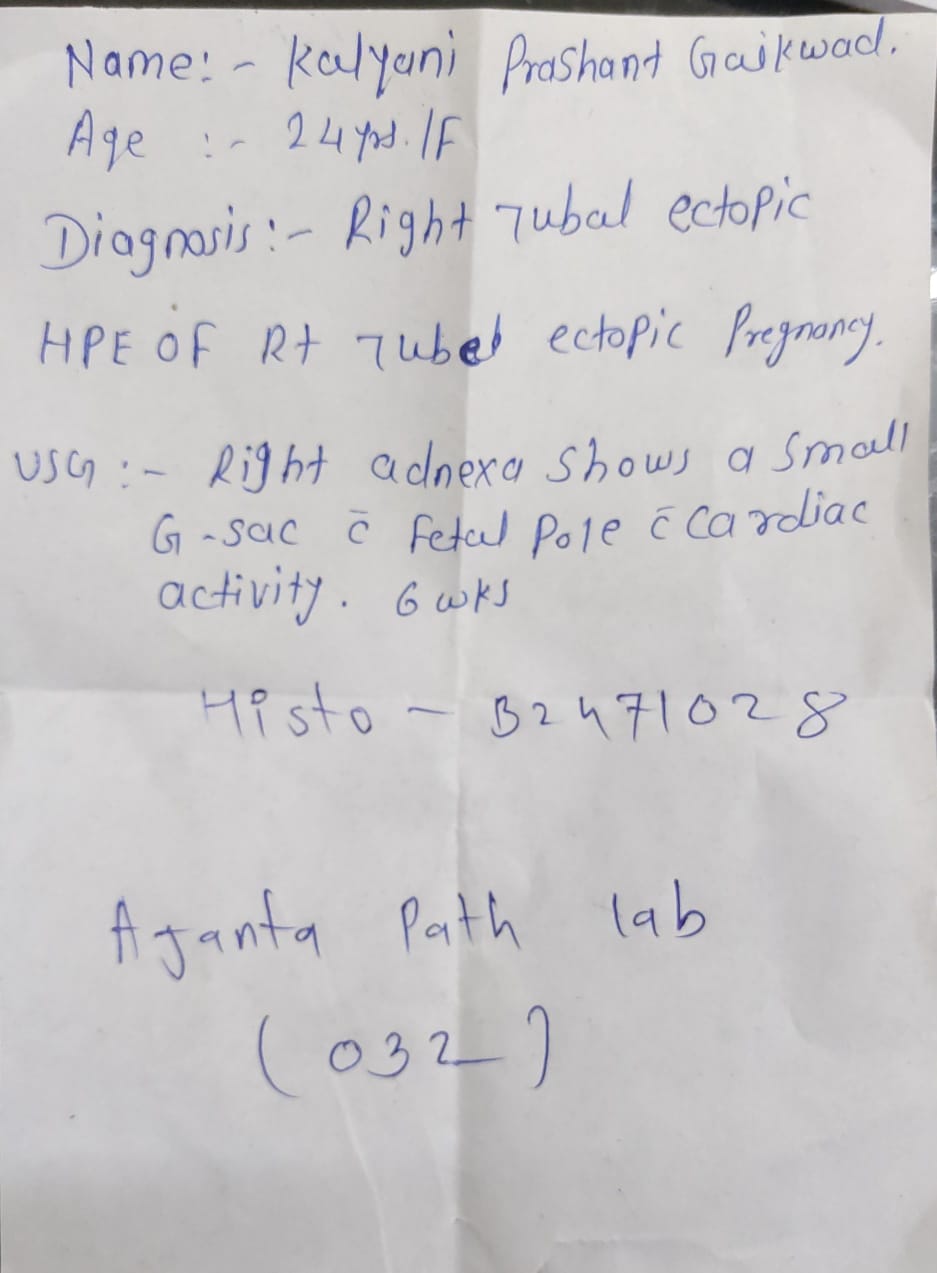 Name:- Kalyani Prashant Gaikwad.
Age :- 24 yrs./F
Diagnosis:- Right Tubal ectopic
HPE OF Rt Tubal ectopic Pregnancy.
USG :- Right adnexa shows a small
G-sac c̄ Fetal Pole c̄ Cardiac
activity. 6 wks
Histo - B2471028
Ajanta Path lab
(032)